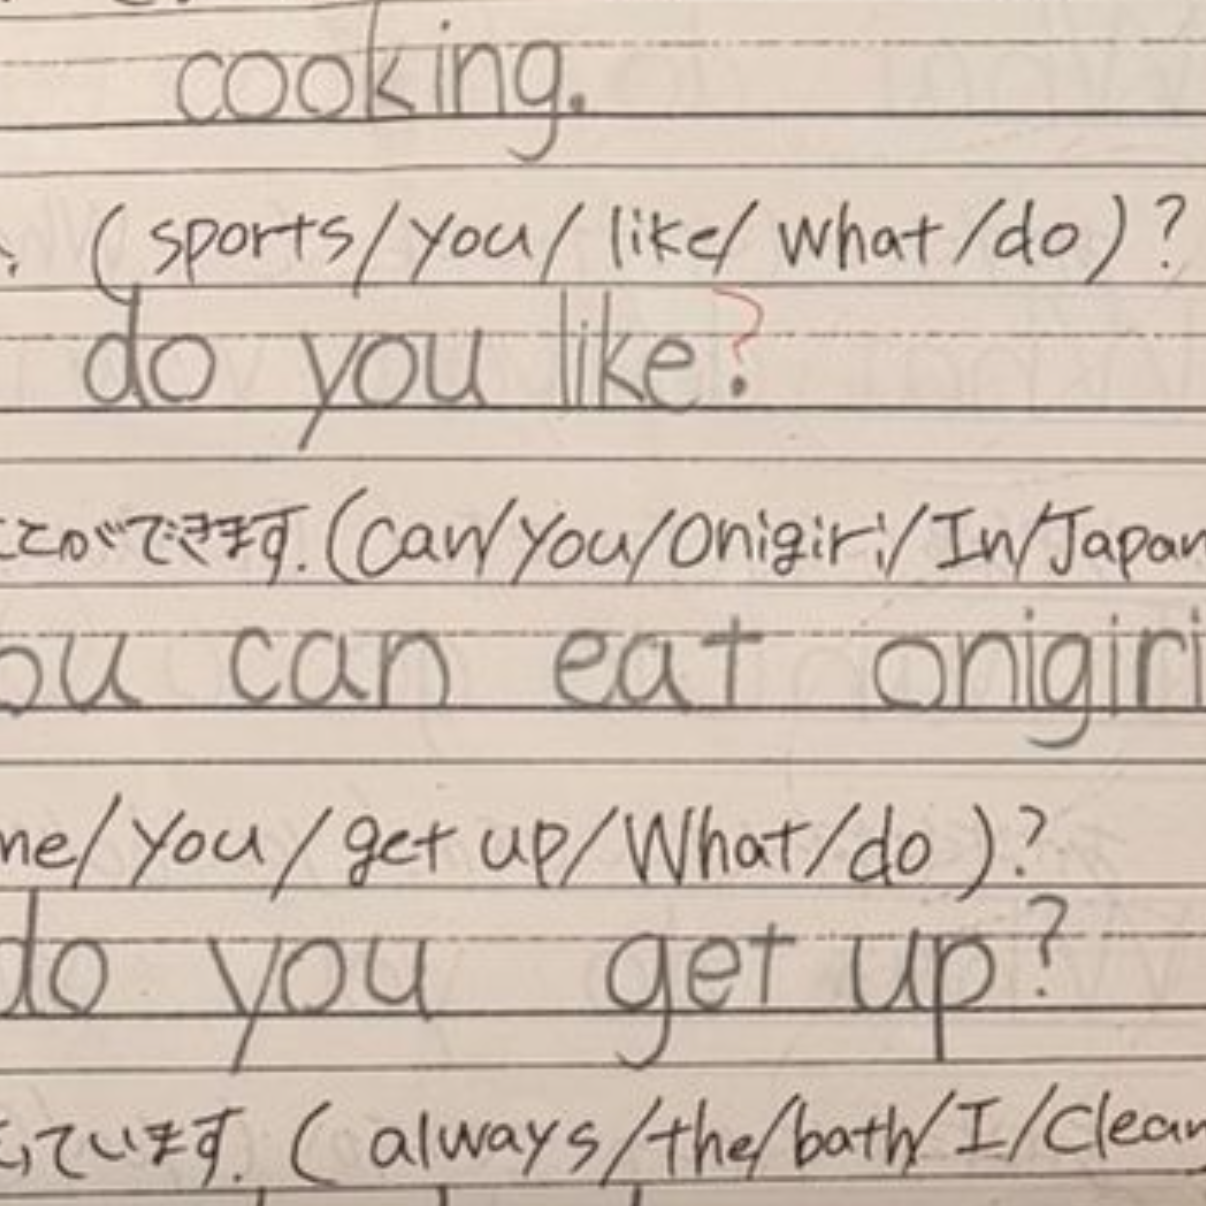 cooking.
(sports/you/like/what/do)?
do you like?
ことができます.(can/you/onigiri/In/Japan
ou can eat onigiri
me/you/get up/What/do)?
do you get up?
っています.(always/the/bath/I/clean